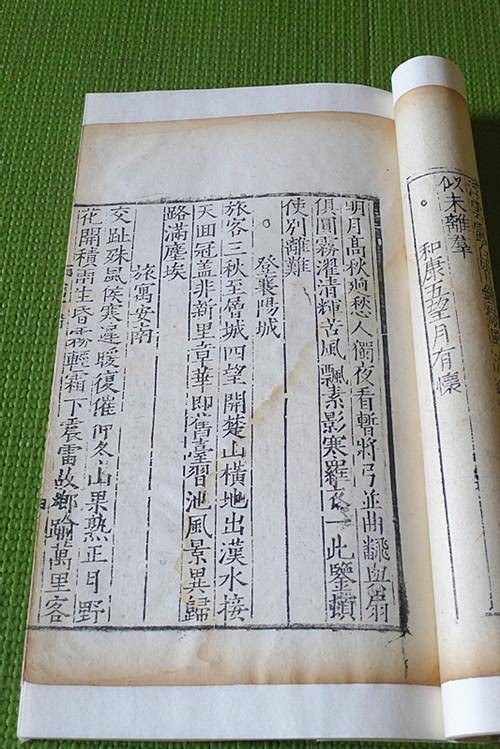 似未離羣
和康五望月有懷
明月高秋逈愁人獨夜看暫將弓並曲翻與扇
俱團霧濯清輝苦風飄素影寒羅衣一此鑒頓
使別離難
登襄陽城
旅客三秋至層城四望開楚山橫地出漢水接
天囬冠蓋非新里章華即舊臺習池風景異歸
路滿塵埃
旅寓安南
交趾殊風候寒遲暖復催仲冬山果熟正月野
花開積雨生昏霧輕霜下震雷故鄉踰萬里客